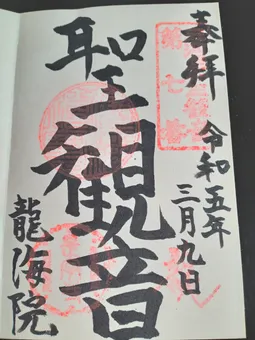 奉拝
令和五年
三月九日
聖観音
龍海院
第七番